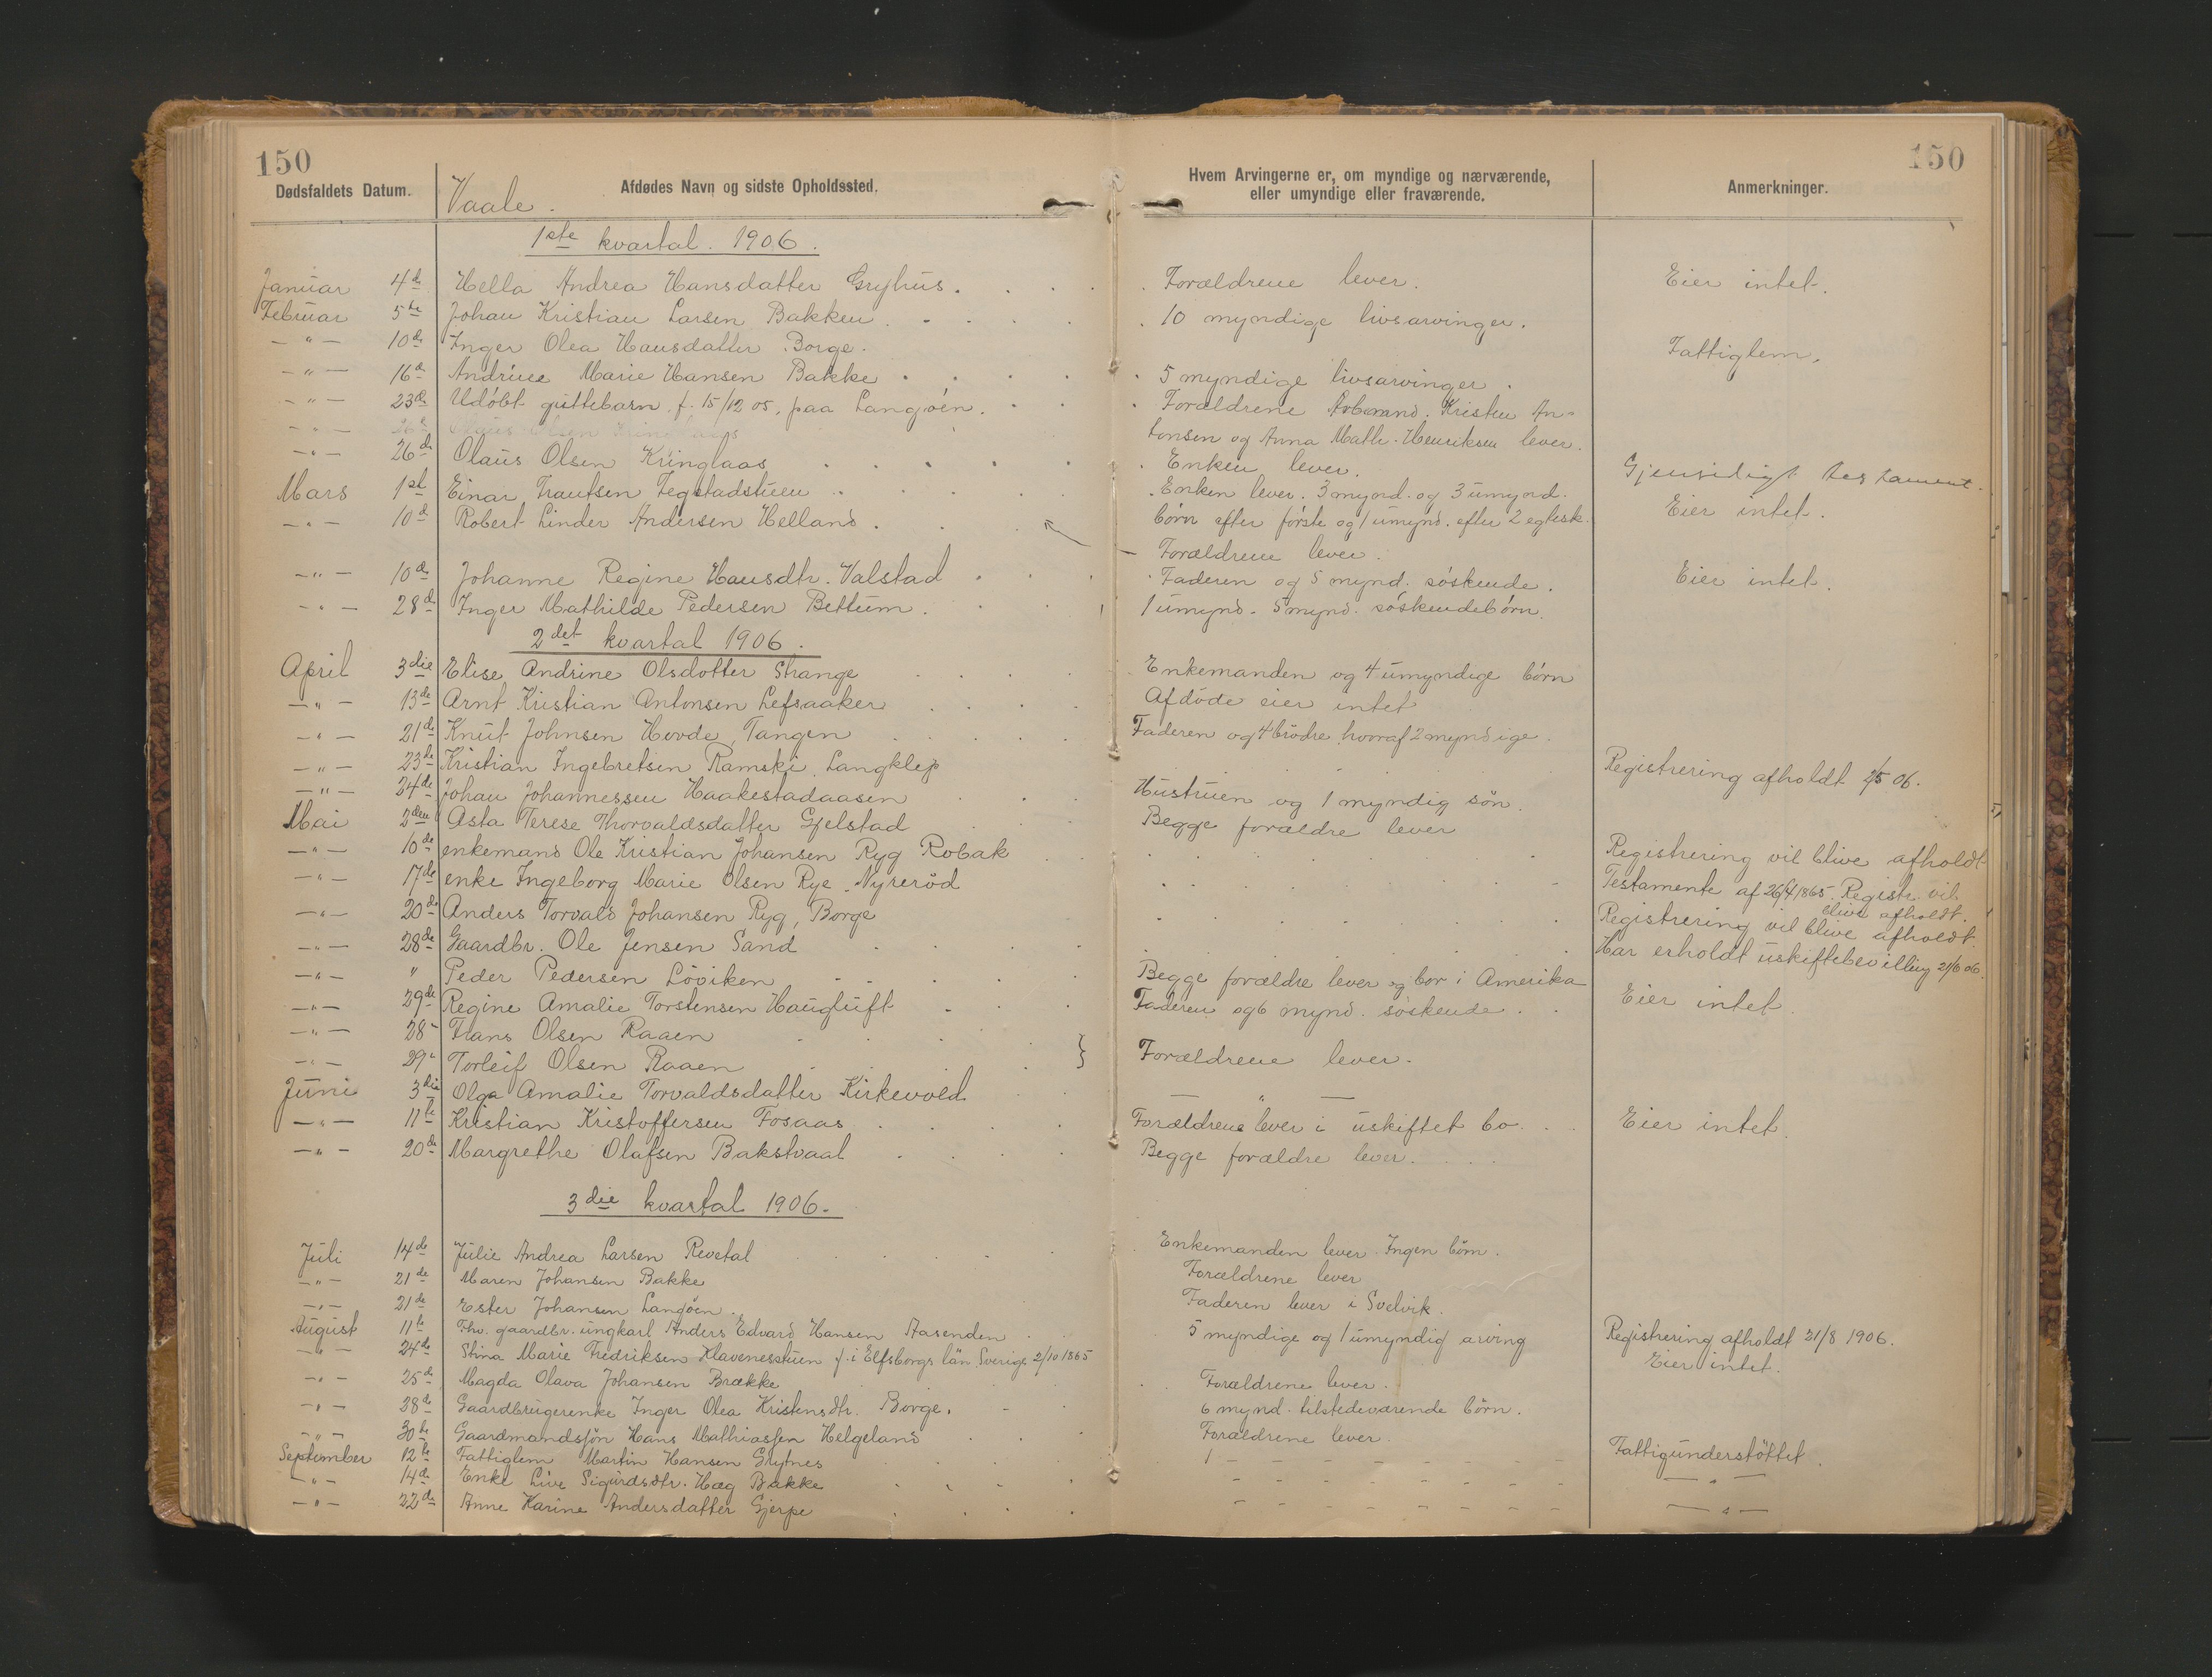 150
150
Dødsfaldets Datum.
Vaale.
Afdødes Navn og sidste Opholdssted.
Hvem Arvingerne er, om myndige og nærværende,
eller umyndige eller fraværende.
Anmerkninger.
1ste kvartal. 1906.
Januar 4de Hella Andrea Hansdatter Gryhus. Forældrene lever. Eier intet.
Februar 5te Johan Kristian Larsen Bakken. 10 myndige livsarvinger.
-"- 10de Inger Olea Hansdatter Borge. Fattiglem.
-"- 16de Andrine Marie Hansen Bakke 5 myndige livsarvinger.
-"- 23de Udøbt guttebarn f. 15/12 05, paa Langøen. Forældrene Kristen An-
tonsen og Anna Math. Henriksen lever.
-"- 26de Olaus Olsen Kringlaas Enken lever. Gjensidigt testament.
Mars 1st Einar Frantsen Fegstadstuen Enken lever. 3 mynd. og 3 umynd.
-"- 10de Robert Linder Andersen Helland. børn efter første og 1 umynd. efter 2 egtesk. Eier intet.
Forældrene lever.
-"- 10de Johanne Regine Hansdtr. Valstad Faderen og 5 mynd. søskende. Eier intet.
-"- 28de Inger Mathilde Pedersen Bettum. 1 umynd. 5 mynd. søskendebørn.
2det kvartal 1906.
April 3die Elise Andrine Olsdotter Strange Enkemanden og 4 umyndige børn
-"- 13de Arnt Kristian Antonsen Lefsaaker Afdøde eier intet
-"- 21de Knut Johnsen Hovde, Tangen Faderen og 4 brødre hvoraf 2 myndige.
-"- 23de Kristian Ingebretsen Ramski, Langklep Registrering afholdt 2/5 06.
-"- 24de Johan Johannessen Haakestadaasen Hustruen og 1 myndig søn.
Mai 2den Asta Terese Thorvaldsdatter Gjelstad Begge forældre lever
-"- 10de enkemand Ole Kristian Johansen Ryg Robak Registrering vil blive afholdt
-"- 17de enke Ingeborg Marie Olsen Rye Nyrerød Testamente af 26/4 1865. Registr. vil
blive afholdt.
-"- 20de Anders Torvald Johansen Ryg, Borge Registrering vil blive afholdt.
-"- 28de Gaardbr. Ole Jensen Sand Har erholdt uskiftebevilling 21/6 06.
-"- " Peder Pedersen Løviken Begge forældre lever og bor i Amerika
-"- 29de Regine Amalie Torstensen Haugtuft Faderen og 6 mynd. søskende. Eier intet.
-"- 28" Hans Olsen Raaen
-"- 29" Torleif Olsen Raaen } Forældrene lever.
Juni 3die Olga Amalie Torvaldsdatter Kirkevold — " —
-"- 11te Kristian Kristoffersen Fosaas Forældrene lever i uskiftet bo. Eier intet.
-"- 20de Margrethe Olafsen Bakstvaal Begge forældre lever.
3die kvartal 1906.
Juli 14de Julie Andrea Larsen Revetal Enkemanden lever. Ingen børn.
-"- 21de Maren Johansen Bakke Forældrene lever
-"- 21de Ester Johansen Langøen. Faderen lever i Svelvik.
August 11te Fhv. gaardbr. ungkarl Anders Edvard Hansen Aasenden 5 myndige og 1 umyndig arving Registrering afholdt 21/8 1906.
-"- 24de Stina Marie Fredriksen Klavenesstuen f. i Elfsborgs län Sverige 2/10 1865 Eier intet.
-"- 25de Magda Olava Johansen Brække Forældrene lever.
-"- 28de Gaardbrugerenke Inger Olea Kristensdtr. Borge. 6 mynd. tilstedeværende børn.
-"- 30te Gaardmandssøn Hans Mathiassen Helgeland Forældrene lever.
September 12te Fattiglem Martin Hansen Grytnes Fattigunderstøttet.
-"- 14de Enke Live Sigurdsdtr. Hæg Bakke -"-
-"- 22de Anne Karine Andersdatter Gjerpe -"-